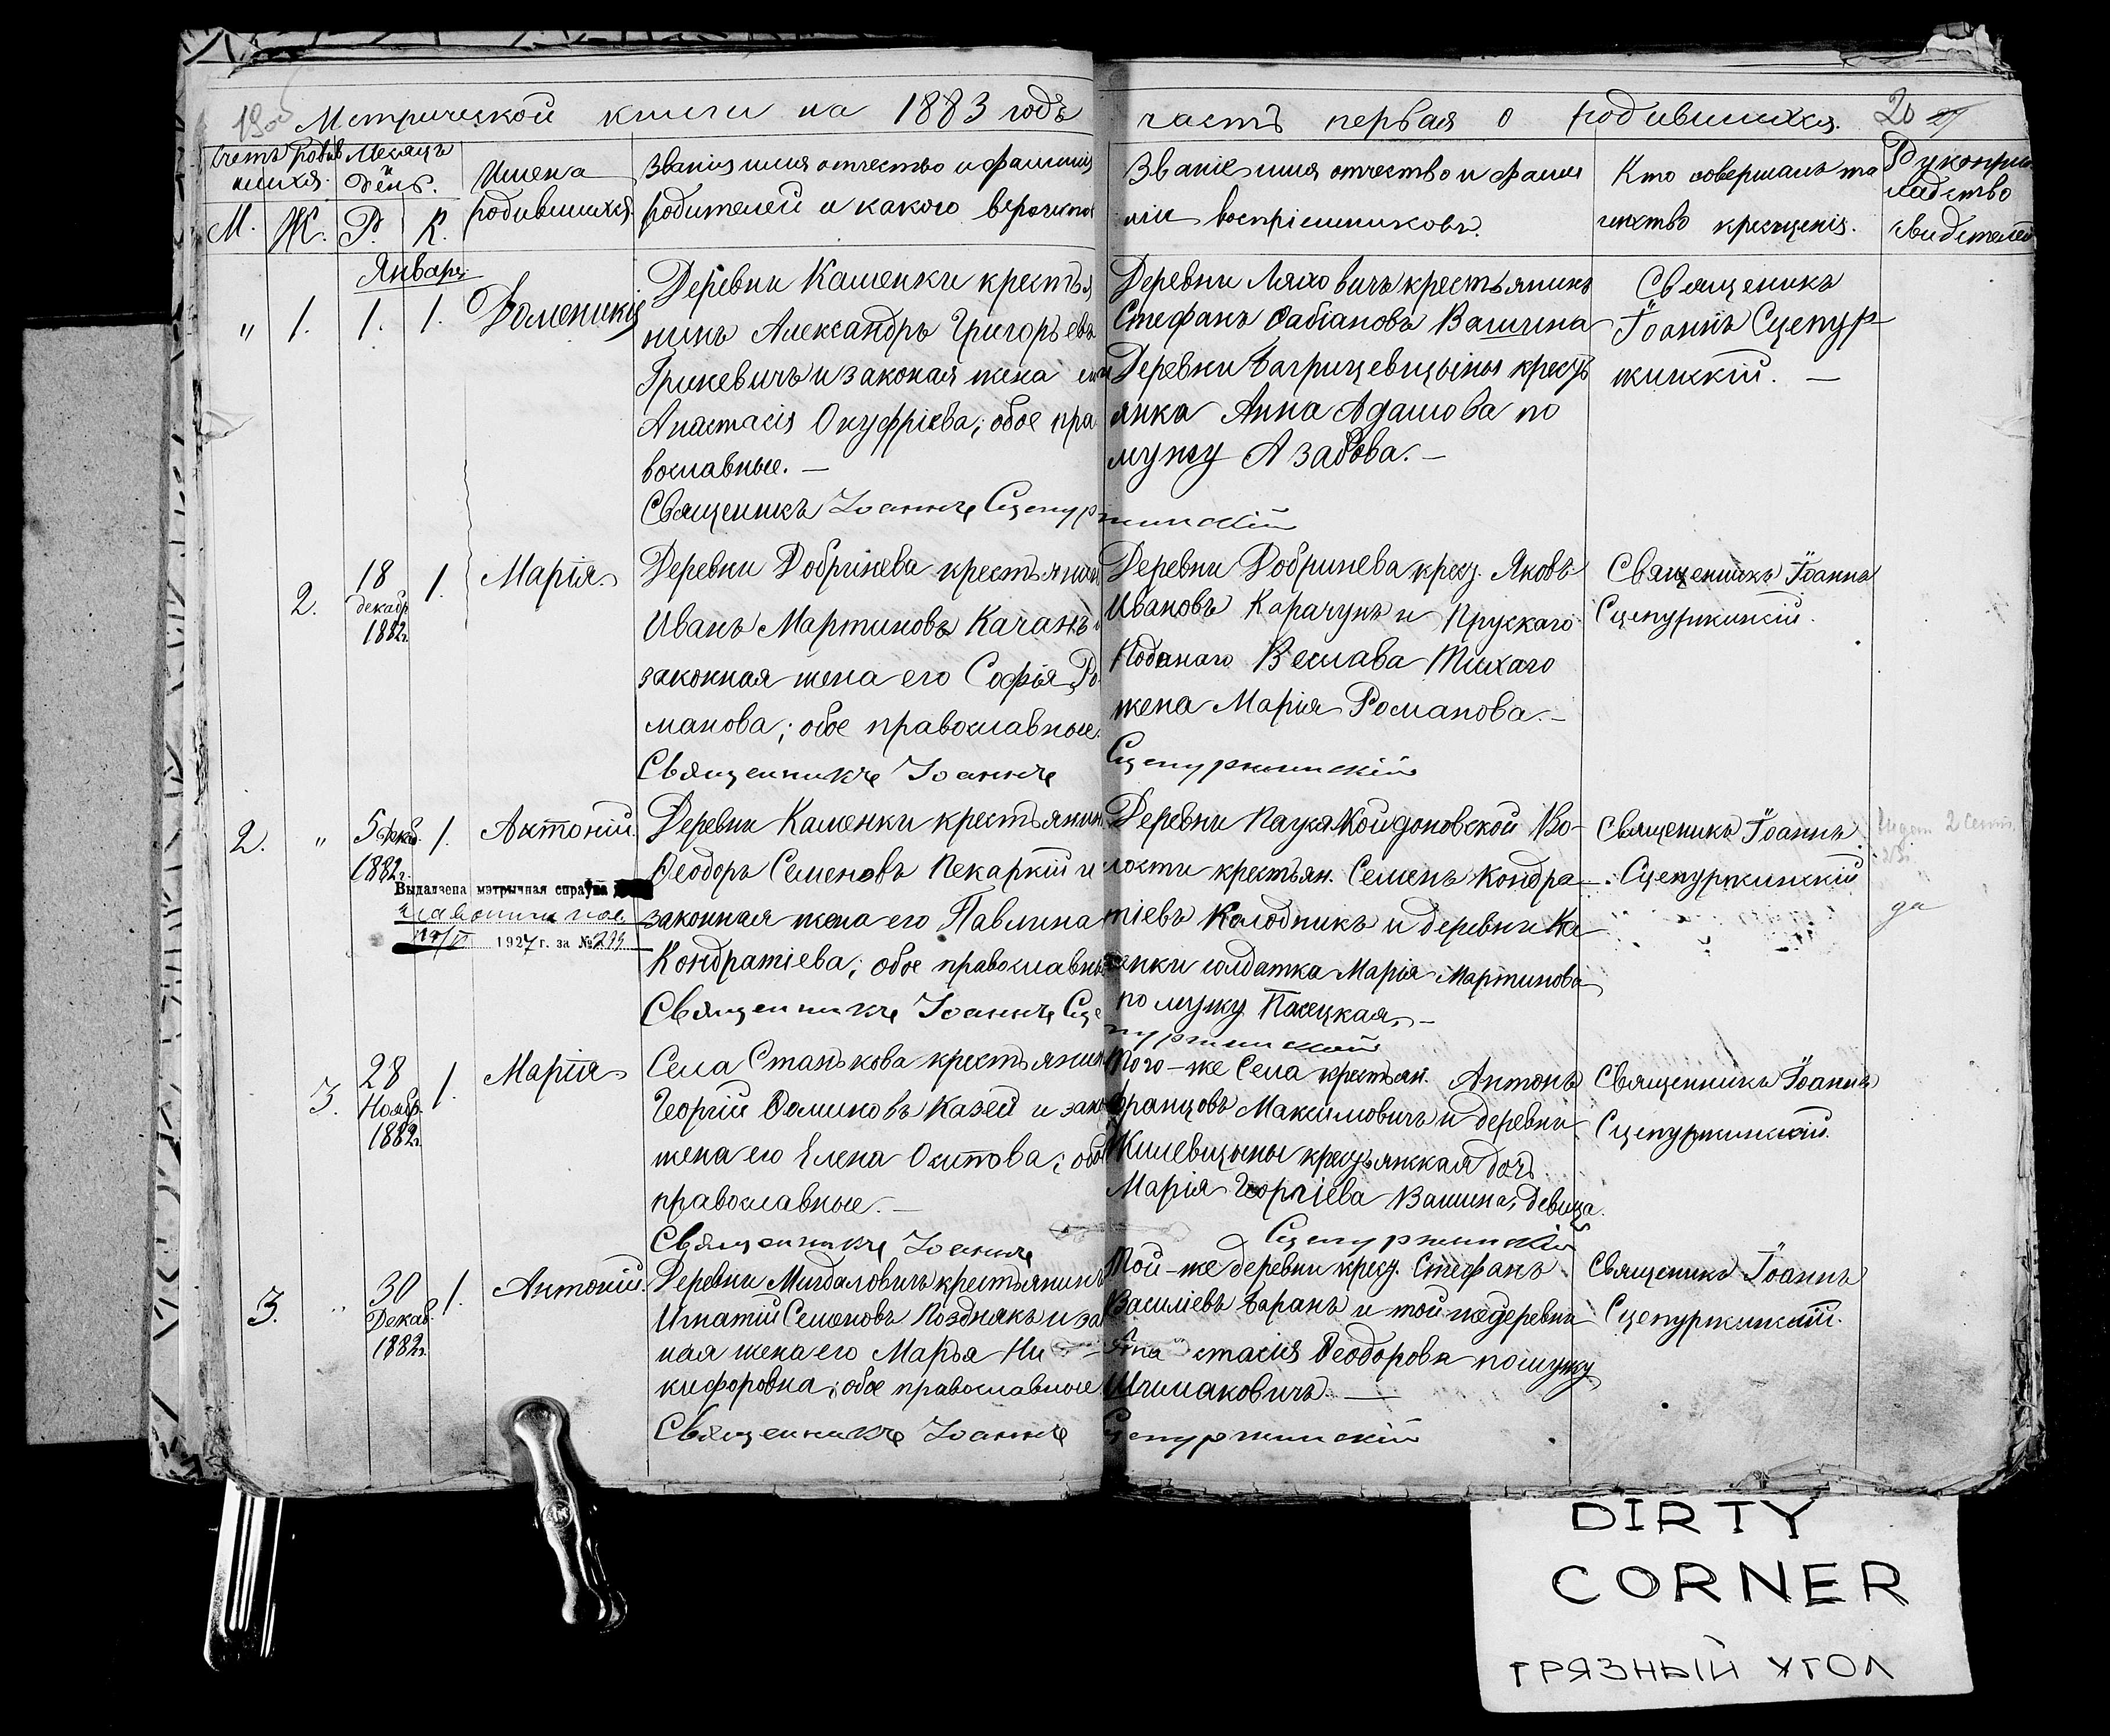 Метрической книги на 1883 годъ
часть первая о родившихся. 20
Счетъ родив
шихся.
Месяцъ
и
день.
М. Ж. Р. К.
Имена
родившихся.
Званія имя отчество и фамилія
родителей и какого вероиспов
Званіе имя отчество и фами
лія воспріемниковъ.
Кто совершалъ та
инство крещенія.
Рукопри
кладство
свидетелей
Января
" 1. 1. 1. Доменикія
Деревни Каменки крестья
нинъ Александръ Григорьевъ
Грикевичъ и законая жена его
Анастасія Онуфріева; обое пра
вославные. —
Священикъ Іоаннъ Сцепуржинскій
Деревни Ляховичъ крестьянинъ
Стефанъ Фабіановъ Вашина
Деревни Багрицевщины кресть
янка Анна Адамова по
мужу Азабова. —
Священикъ
Іоаннъ Сцепур-
жинскій. —
2. 18 декабр 1882г. 1. Марія
Деревни Добринева крестьянинъ
Иванъ Мартиновъ Качанъ и
законная жена его Софья Ро
манова; обое православные.
Священникъ Іоаннъ Сцепуржинскій
Деревни Добринева крест. Яковъ
Ивановъ Карачунъ и Прускаго
Поданаго Веслава Тихаго
жена Марія Романова. —
Священикъ Іоаннъ
Сцепуржинскій.
2. " 5 декб. 1882г. 1. Антоній.
Выдадзена мэтрычная справка
1927 г. за № 299
Деревни Каменки крестьянин.
Феодоръ Семеновъ Пекаркій и
законная жена его Павлина
Кондратіева; обое православны
Священникъ Іоаннъ Сцепуржинскій
Деревни Пауся Койдоновской Во-
лости крестьян. Семенъ Кондра-
тіевъ Колодникъ и деревни Ка
менки солдатка Марія Мартинова
по мужу Пасецкая. —
Священикъ Іоаннъ
Сцепуржинскій
да
3. 28 Ноябр. 1882г. 1. Марія
Села Станькова крестьянин
Георгій Фоминовъ Казей и зако
жена его Елена Осипова; обое
православные. —
Священникъ Іоаннъ Сцепуржинскій
Того-же Села крестьян. Антонъ
Францовъ Максимовичъ и деревни
Жилевщины крестьянская дочь
Марія Георгіева Вашина, девица.
Священникъ Іоаннъ
Сцепуржинскій.
3. " 30 Декаб. 1882г. 1. Антоній.
Деревни Мигдаловичъ крестьянинъ
Игнатій Семеновъ Позднякъ и зако
ная жена его Марья Ни
кифоровна; обое православные
Священникъ Іоаннъ Сцепуржинскій
Той-же деревни крест. Стефанъ
Василіевъ Баранъ и той же деревни
Анастасія Феодорова по мужу
Шимаковичъ. —
Священикъ Іоаннъ
Сцепуржинскій.
DIRTY
CORNER
ГРЯЗНЫЙ УГОЛ